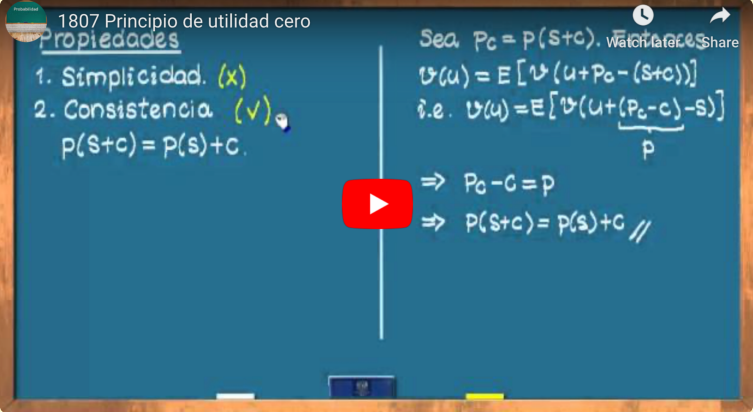 1807 Principio de utilidad cero
Watch later
Share
Probabilidad
Propiedades
1. Simplicidad. (x)
2. Consistencia (√).
p(S+c) = p(S)+c.
Sea Pc = p(S+c). Entonces
v(u) = E[v(u+Pc-(S+c))]
i.e. v(u) = E[v(u+(Pc-c)-S)]
p
⇒ Pc-c = p
⇒ p(S+c) = p(S)+c //